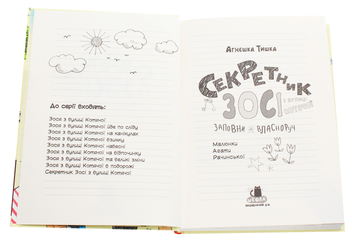 До серії входять:
Зося з вулиці Котячої
Зося з вулиці Котячої йде по сліду
Зося з вулиці Котячої на канікулах
Зося з вулиці Котячої взимку
Зося з вулиці Котячої навесні
Зося з вулиці Котячої на відпочинку
Зося з вулиці Котячої та великі зміни
Зося з вулиці Котячої в подорожі
Секретник Зосі з вулиці Котячої
Агнешка Тишка
СЕКРЕТНИК
ЗОСІ
з вулиці
Котячої
ЗАПОВНИ ВЛАСНОРУЧ
Малюнки
Агати
Рачинської